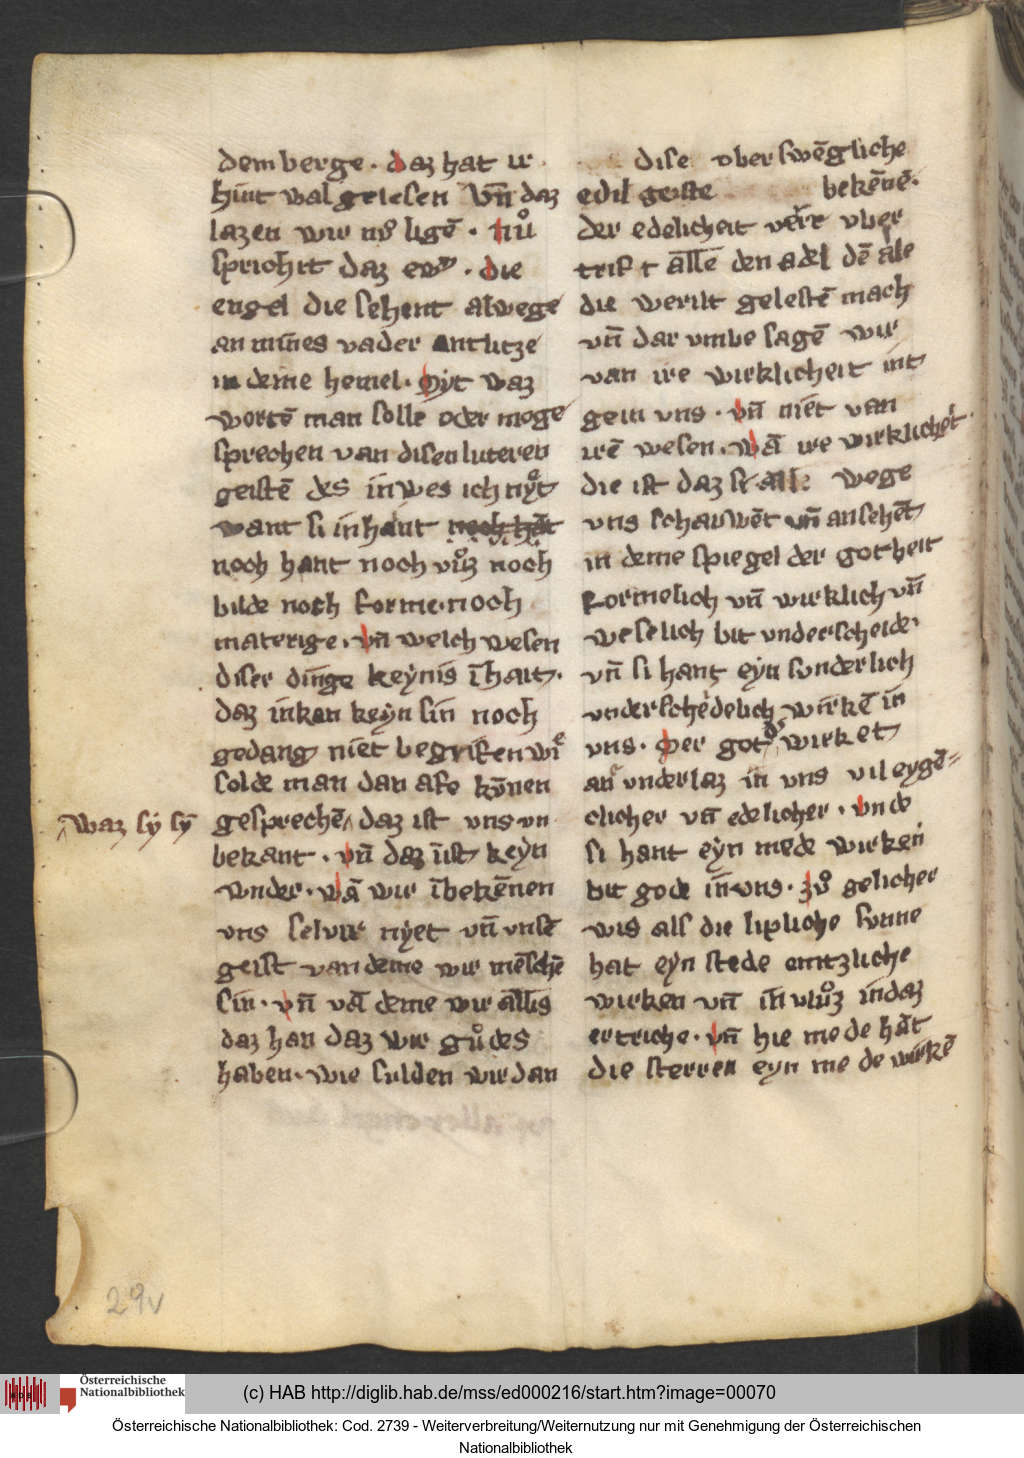 dem berge · daz hat ir
hint wal gelesen Vn̄ daz
lazen wir nv̊ ligē · nů
sprichit daz ewͦ · die
engel die sehent alwege
an mines vader antlitze
in deme hemel · Nyt waz
wortē man solle oder moge
sprechen van disen luteren
geistē des in wes ich nẙt
want si in haint noch hāt
noch hant noch vůz noch
bilde noch forme · noch
materige · vn̄ welch wesen
diser dinge keynis īhait ·
daz inkan keyn sin noch
gedang niet begrifen wiͤ
solde man dan afe kōnen
waz sy sȳ
gesprechē daz ist uns un
bekant · vn̄ daz īist keyn
wnder · wā wir ībekēnen
vns selvir nyet vn̄ vnsē
geist van deme wir mēschē
sin · vn̄ vā deme wir allis
daz han daz wir gůdes
haben · wie sulden wir dan
dise vber swēgliche
edil geiste bekēnē ·
der edelicheit verre vber
trift allē den adel dē ale
die werilt gelestē mach
vn̄ dar vmbe sagē wir
van ire wirklicheit int
gein vns · vn̄ niet van
irē wesen · wā ire wirklicheit ·
die ist daz si alle wege
vns schauwēt vn̄ an sehēt
in deme spiegel der gotheit
formelich vn̄ wirklich vn̄
weselich bit vnderscheide ·
vn̄ si hant eyn sunderlich
vnderschedelich wirkē in
vns · Der got wirket
an vnderlaz in vns vil eygē=
clicher vn̄ edelicher · vnde
si hant eyn mede wirken
bit gode in vns · zů gelicher
wis als die lipliche sunne
hat eyn stede emtzliche
wirken vn̄ in vlůz in daz
ertriche · vn̄ hie mede hāt
die sterren eyn mede wirkē
29v
Österreichische
Nationalbibliothek
(c) HAB http://diglib.hab.de/mss/ed000216/start.htm?image=00070
Österreichische Nationalbibliothek: Cod. 2739 - Weiterverbreitung/Weiternutzung nur mit Genehmigung der Österreichischen
Nationalbibliothek